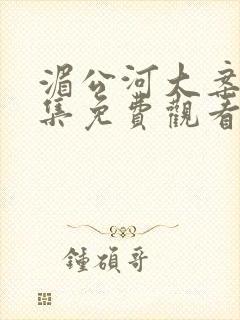 湄公河大案
集免費觀看
鍾碩哥